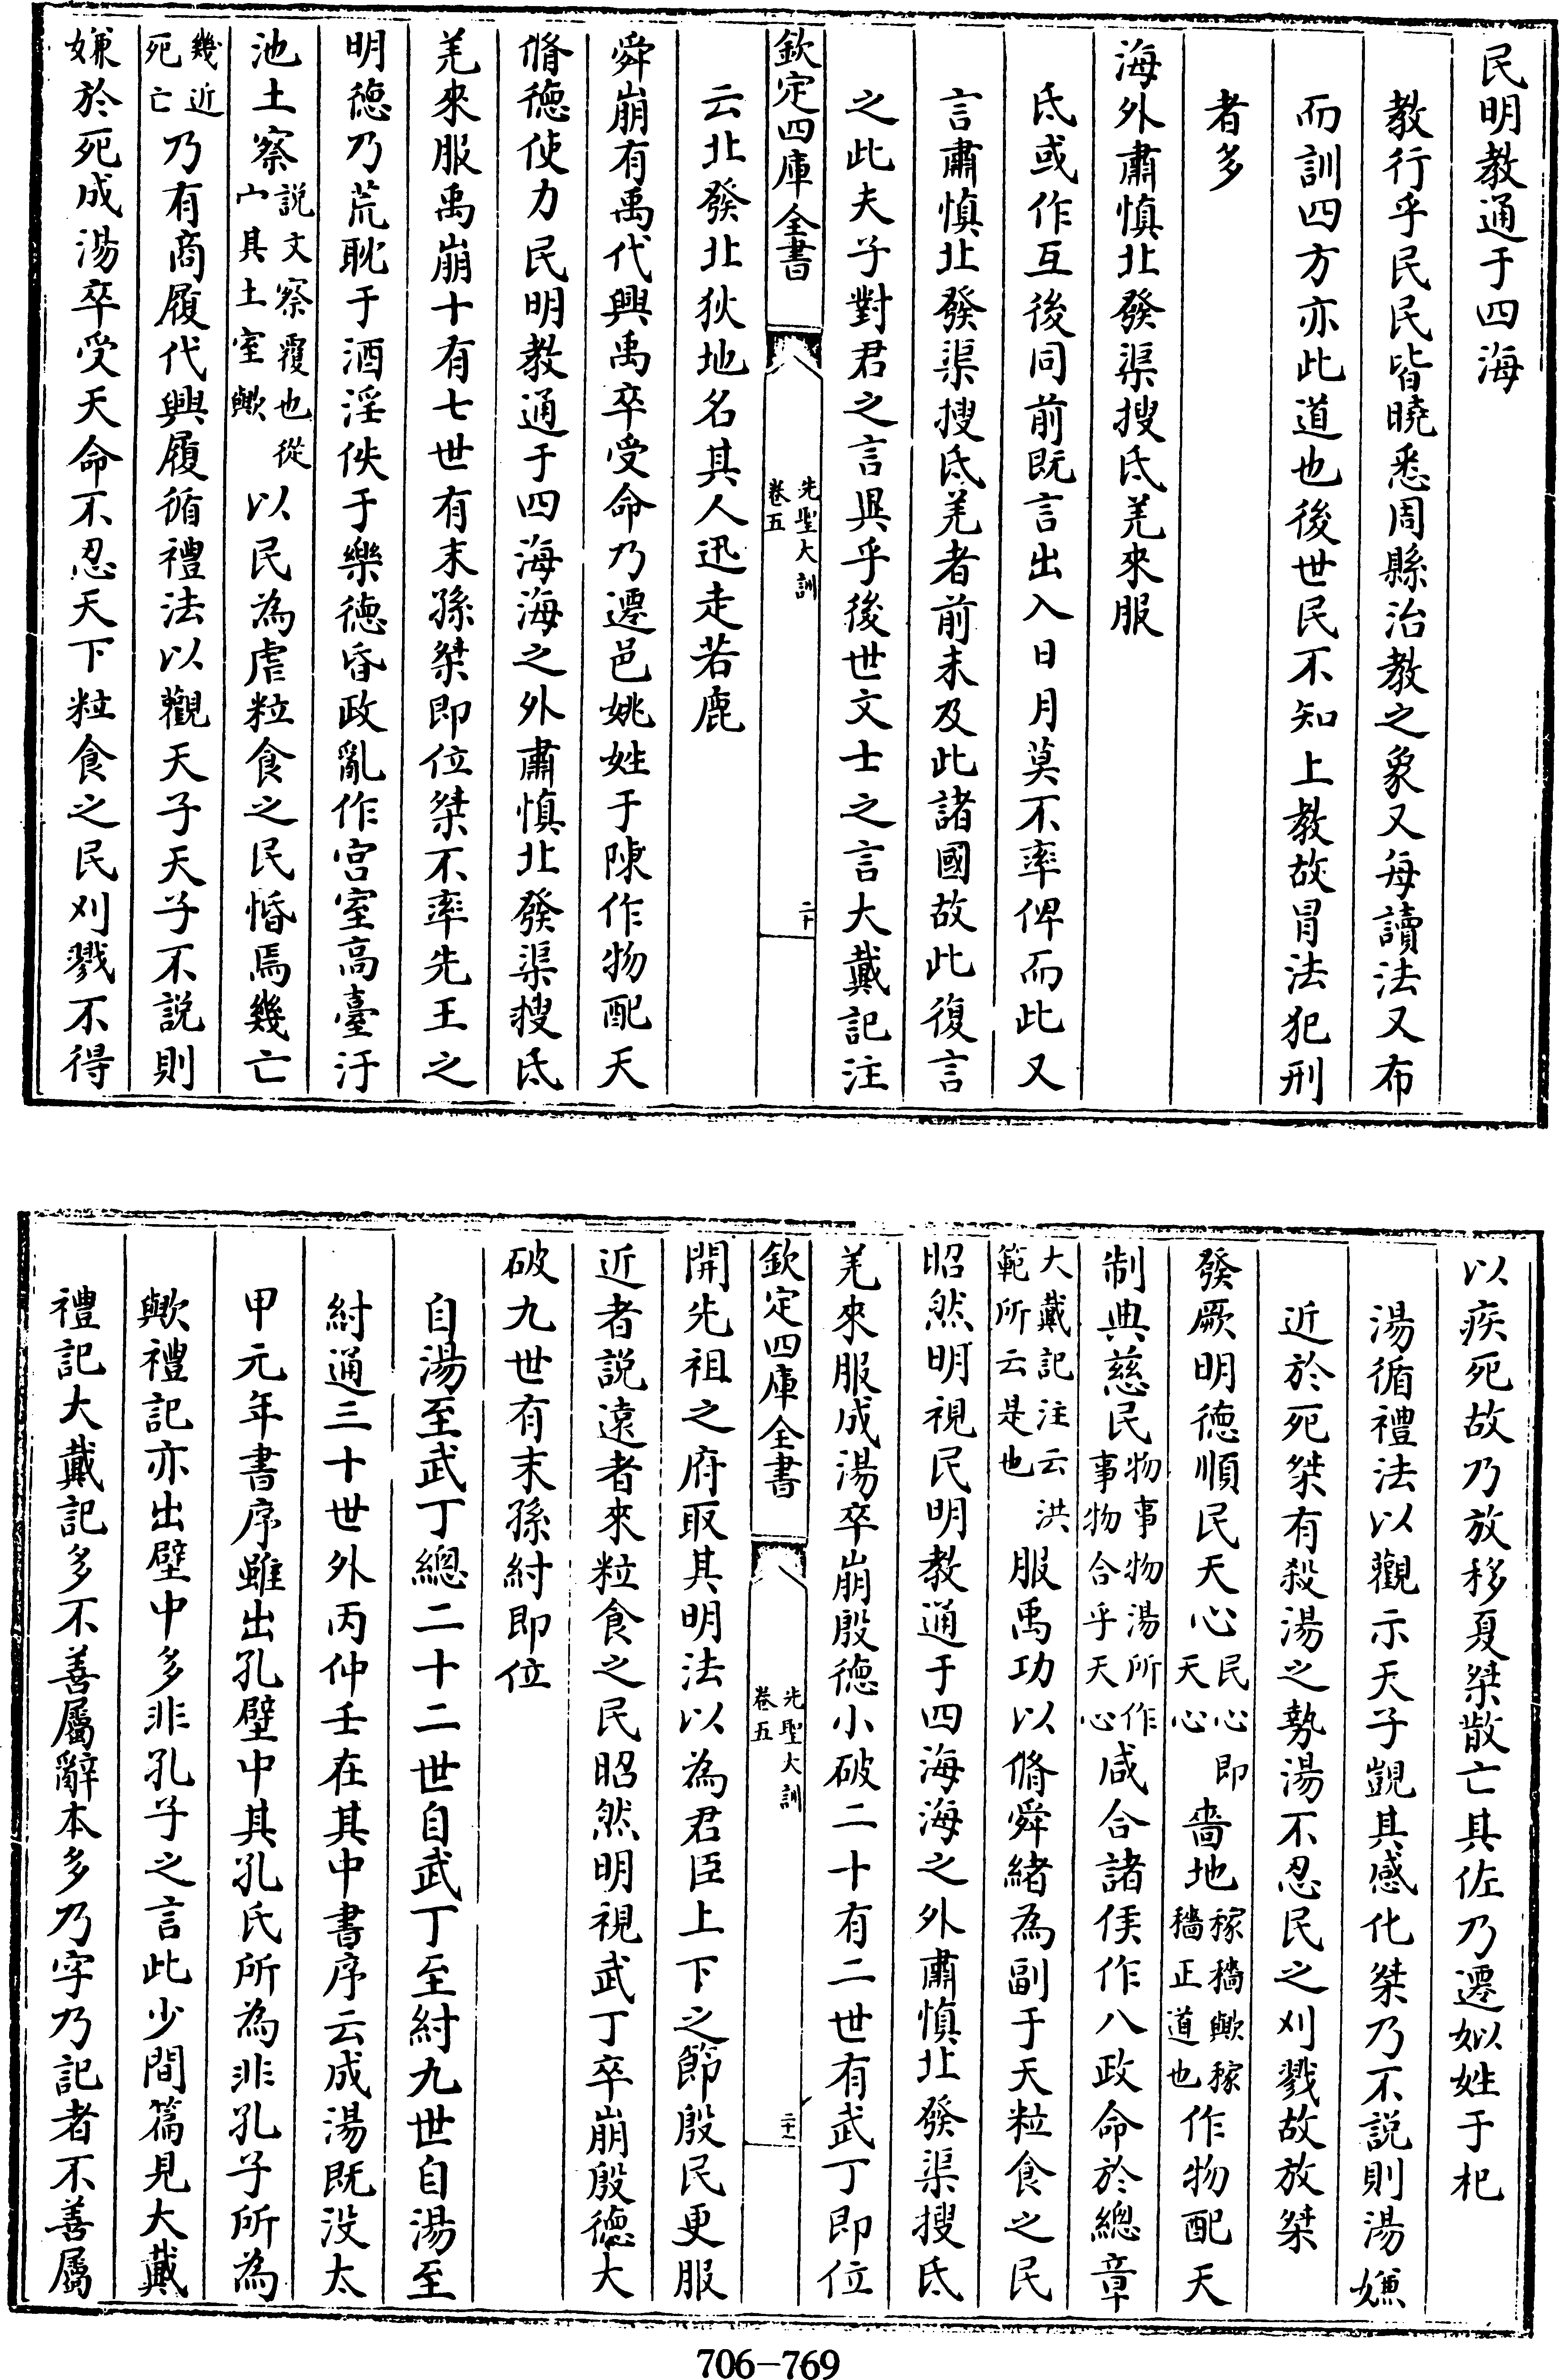 民明教通于四海
教行乎民民皆曉悉周縣治教之象又每讀法又布
而訓四方亦此道也後世民不知上教故冐法犯刑
者多
海外肅慎北發渠搜氐羌來服
氐或作互後同前既言出入日月莫不率俾而此又
言肅慎北發渠搜氐羌者前未及此諸國故此復言
之此夫子對君之言異乎後世文士之言大戴記注
欽定四庫全書
先聖大訓
卷五
二十
云北發北狄地名其人迅走若鹿
舜崩有禹代興禹卒受命乃遷邑姚姓于陳作物配天
脩德使力民明教通于四海海之外肅慎北發渠搜氐
羌來服禹崩十有七世有末孫桀即位桀不率先王之
明德乃荒耽于酒淫佚于樂德昏政亂作宮室高臺汙
池土察說文察覆也從宀具土室歟以民為虐粒食之民惛焉幾亡
幾近死亡乃有商履代興履循禮法以觀天子天子不說則
嫌於死成湯卒受天命不忍天下粒食之民刈戮不得
以疾死故乃放移夏桀散亡其佐乃遷姒姓于杞
湯循禮法以觀示天子覬其感化桀乃不說則湯嫌
近於死桀有殺湯之勢湯不忍民之刈戮故放桀
發厥明德順民天心民心即天心嗇地稼穡歟稼穡正道也作物配天
制典慈民物事物湯所作事物合乎天心咸合諸侯作八政命於總章
大戴記注云洪範所云是也服禹功以脩舜緒為副于天粒食之民
昭然明視民明教通于四海海之外肅慎北發渠搜氐
羌來服成湯卒崩殷德小破二十有二世有武丁即位
欽定四庫全書
先聖大訓
卷五
二十一
開先祖之府取其明法以為君臣上下之節殷民更服
近者說遠者來粒食之民昭然明視武丁卒崩殷德大
破九世有末孫紂即位
自湯至武丁總二十二世自武丁至紂九世自湯至
紂通三十世外丙仲壬在其中書序云成湯既沒太
甲元年書序雖出孔壁中其孔氏所為非孔子所為
歟禮記亦出壁中多非孔子之言此少間篇見大戴
禮記大戴記多不善屬辭本多乃字乃記者不善屬
706-769